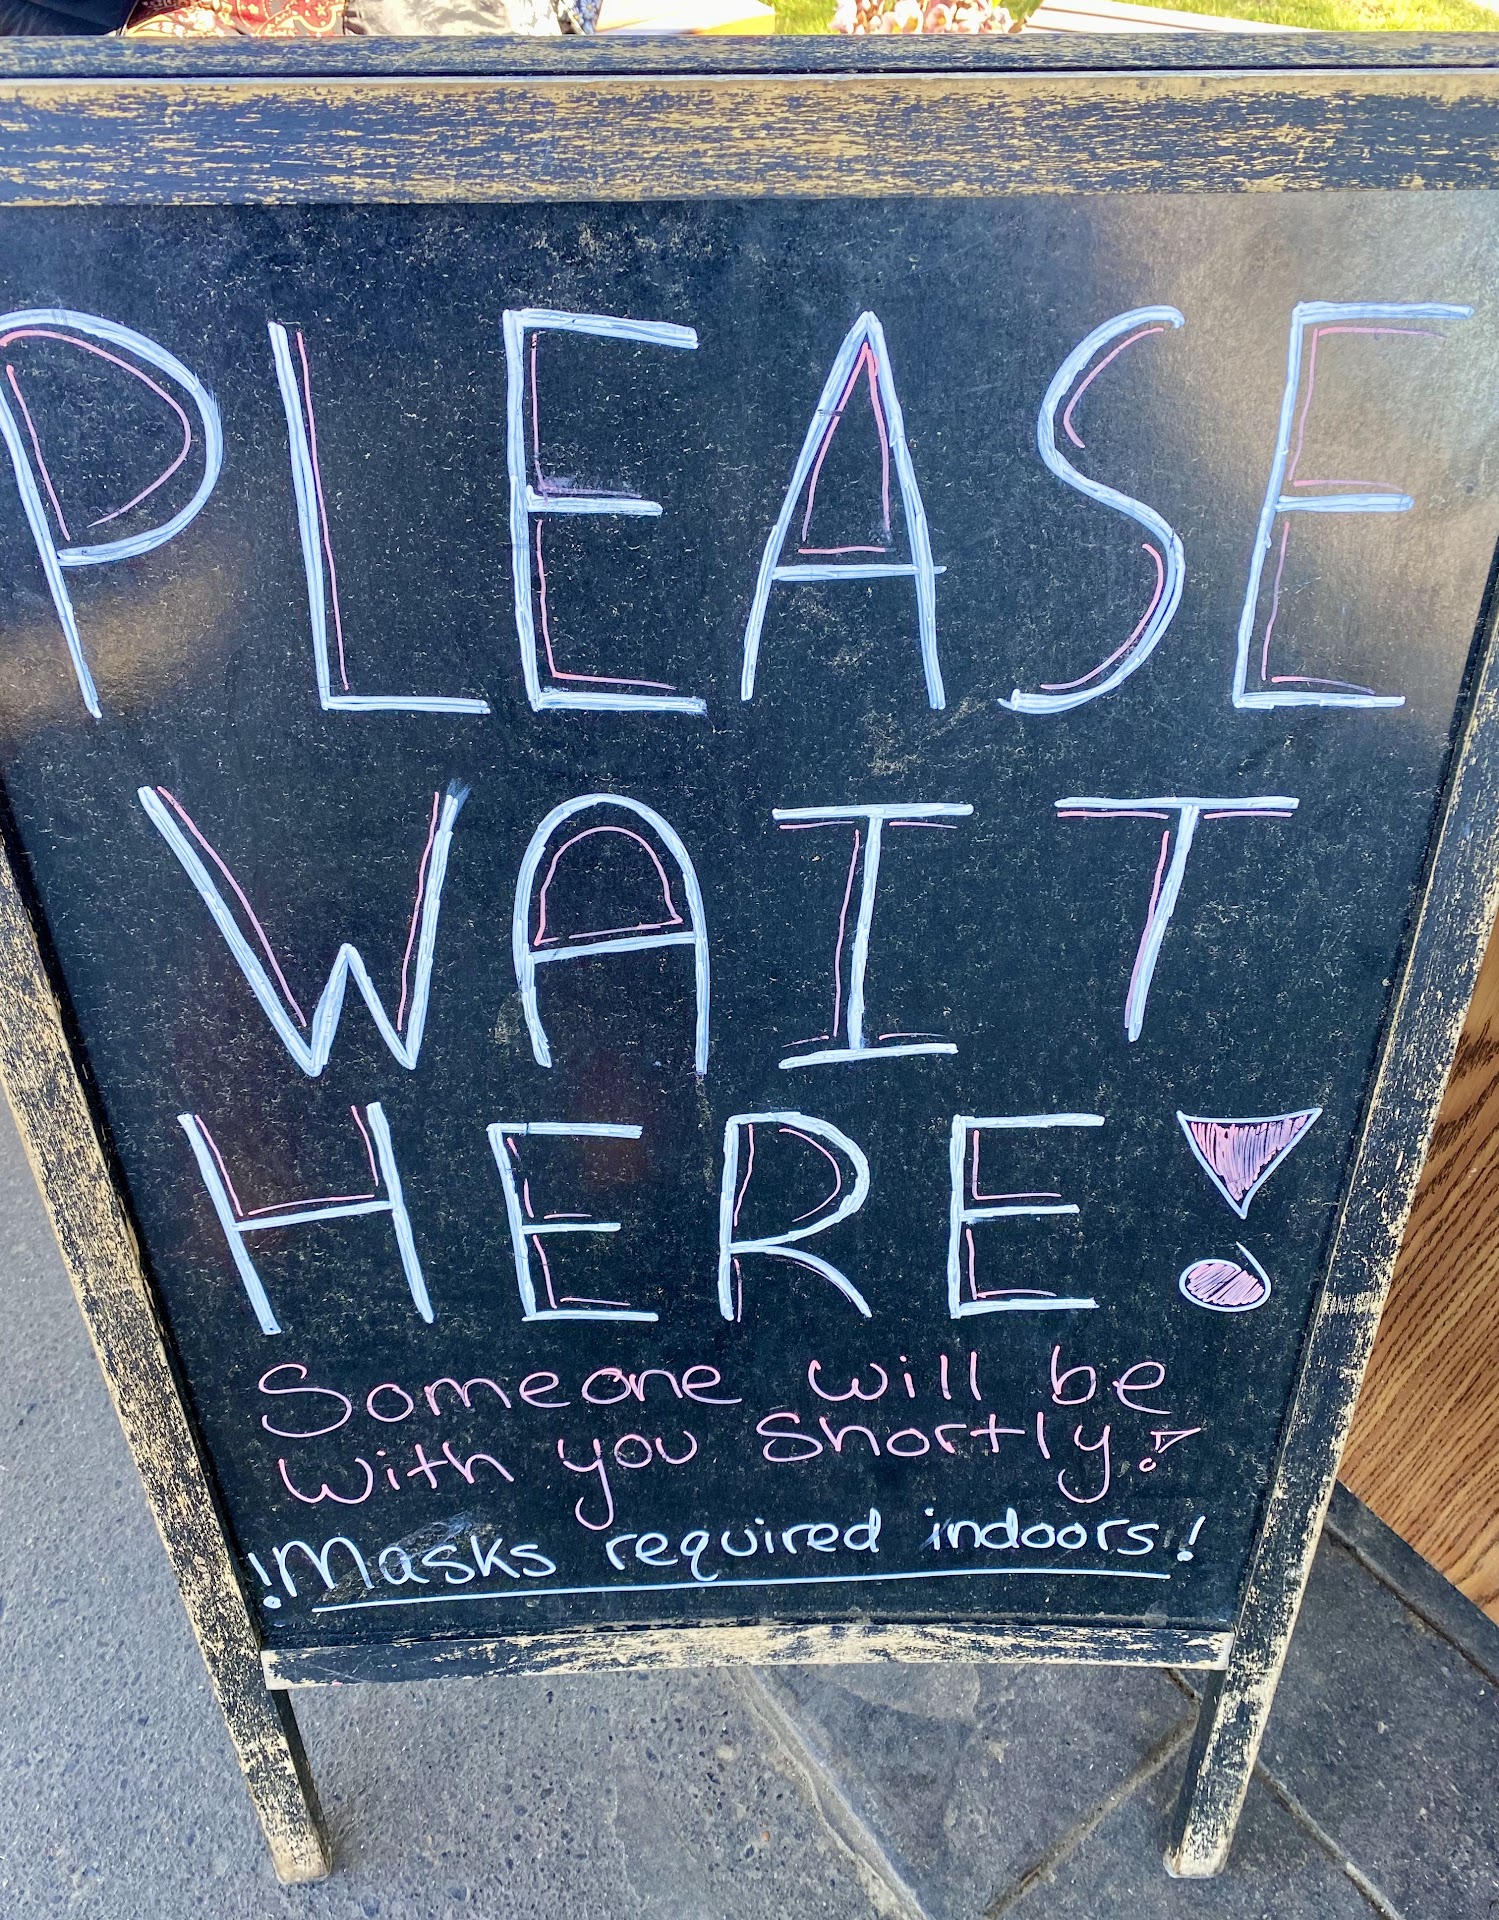 PLEASE
WAIT
HERE!
Someone will be
with you shortly!
!Masks required indoors!